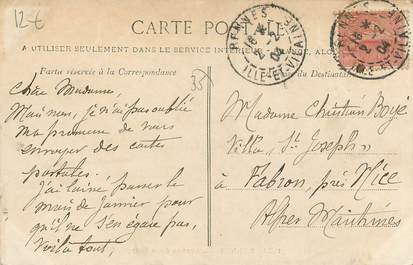 12-€
CARTE POSTALE
A UTILISER SEULEMENT DANS LE SERVICE INTÉRIEUR
Partie réservée à la Correspondance
du Destinataire
35
RENNES
ILLE-ET-VILAINE
2-2
04
Chère Madame,
Mais non, je n'ai pas oublié
ma promesse de vous
envoyer des cartes
postales.
J'ai laissé passer le
mois de Janvier pour
qu'il ne s'en égare pas,
Voilà tout,
Madame Christian Boyé
Villa "St Joseph"
à Fabron, près Nice
Alpes Maritimes